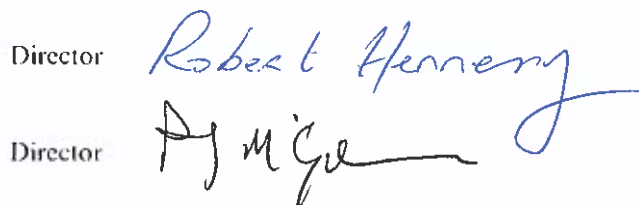 Director Robert Hennessy
Director PJ